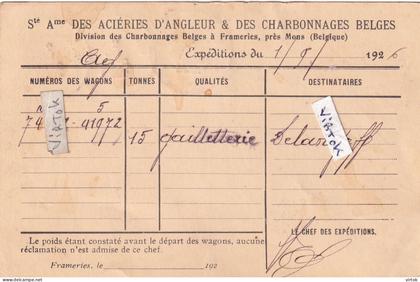 Sté Ame DES ACIÉRIES D'ANGLEUR & DES CHARBONNAGES BELGES
Division des Charbonnages Belges à Frameries, près Mons (Belgique)
Expéditions du 1/5/ 1926
NUMÉROS DES WAGONS TONNES QUALITÉS DESTINATAIRES
5
74 91972 15 gailletterie
VIRTOK
VIRTOK
Le poids étant constaté avant le départ des wagons, aucune
réclamation n'est admise de ce chef.
LE CHEF DES EXPÉDITIONS.
Frameries, le 192